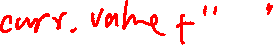 curr. value + "   "